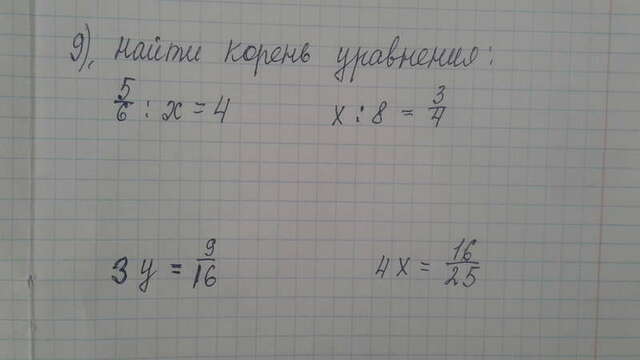 9) Найти корень уравнения:
5/6 : x = 4
x : 8 = 3/4
3y = 9/16
4x = 16/25